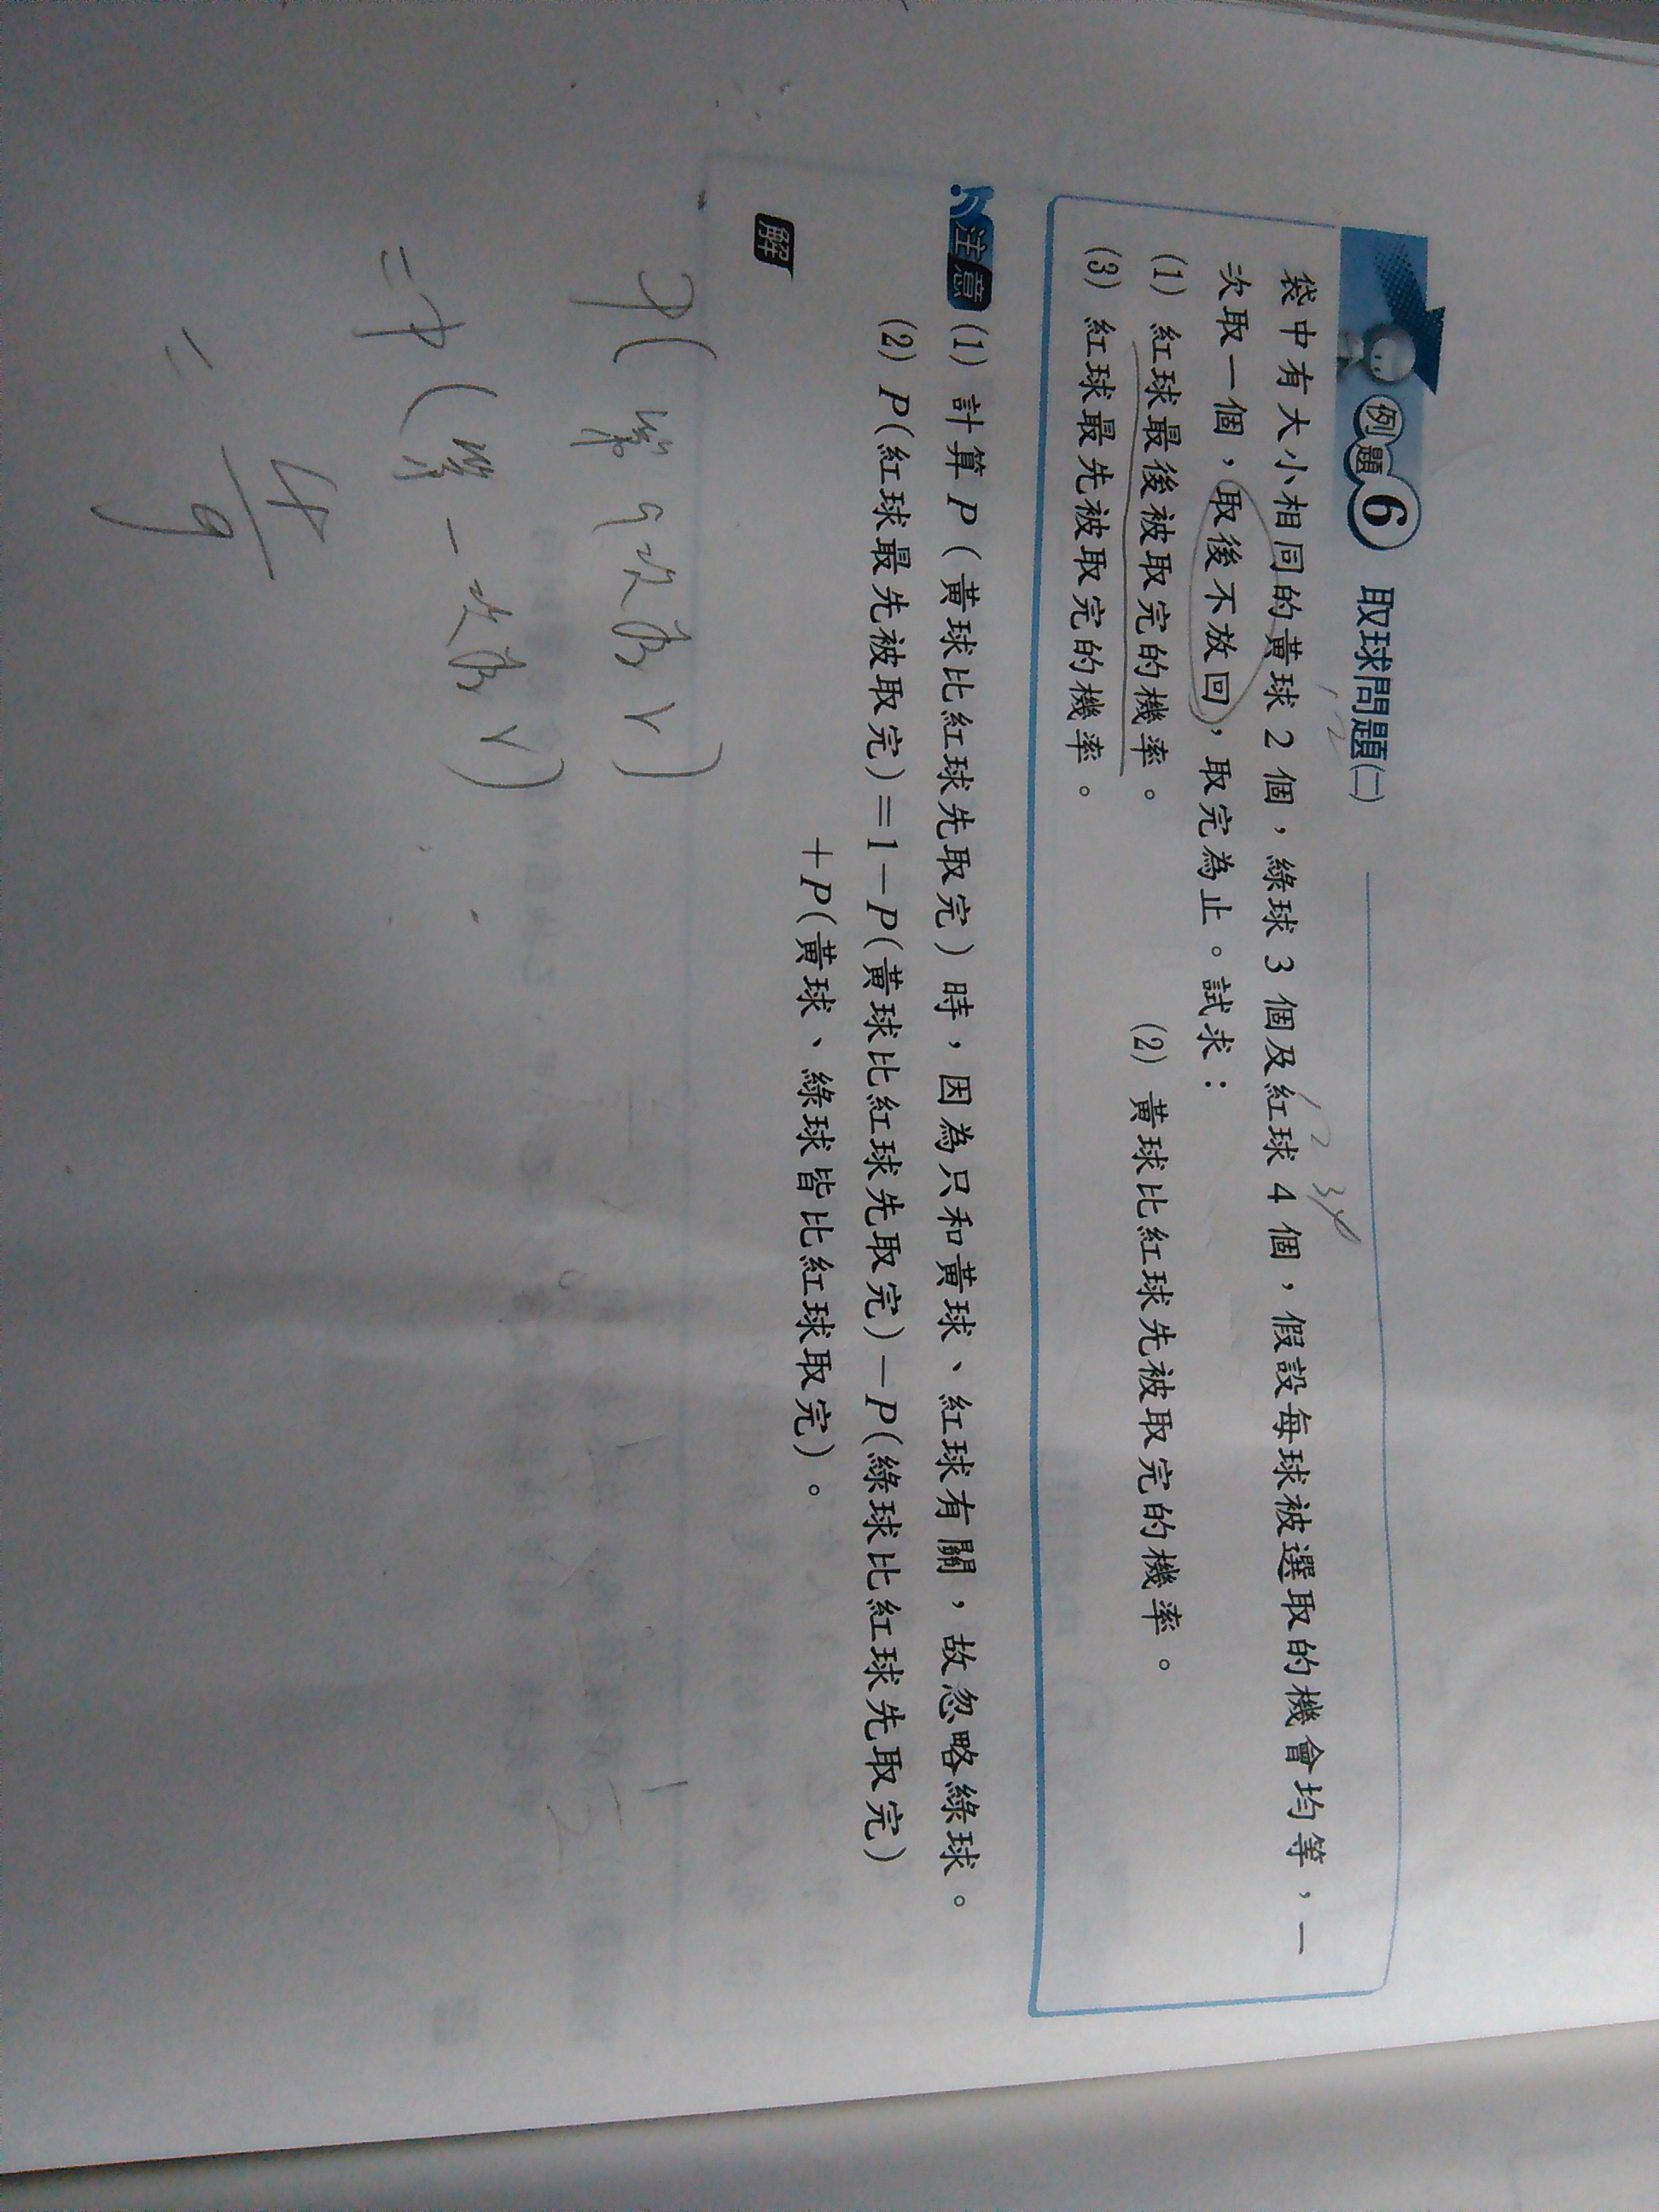 例題6 取球問題(二)
袋中有大小相同的黃球 2 個，綠球 3 個及紅球 4 個，假設每球被選取的機會均等，一
次取一個，取後不放回，取完為止。試求：
(1) 紅球最後被取完的機率。 (2) 黃球比紅球先被取完的機率。
(3) 紅球最先被取完的機率。
注意 (1) 計算 P（黃球比紅球先取完）時，因為只和黃球、紅球有關，故忽略綠球。
(2) P(紅球最先被取完)＝1－P(黃球比紅球先取完)－P(綠球比紅球先取完)
＋P(黃球、綠球皆比紅球取完)。
解
P(第9次為r)
=P(第一次為r)
= 4/9